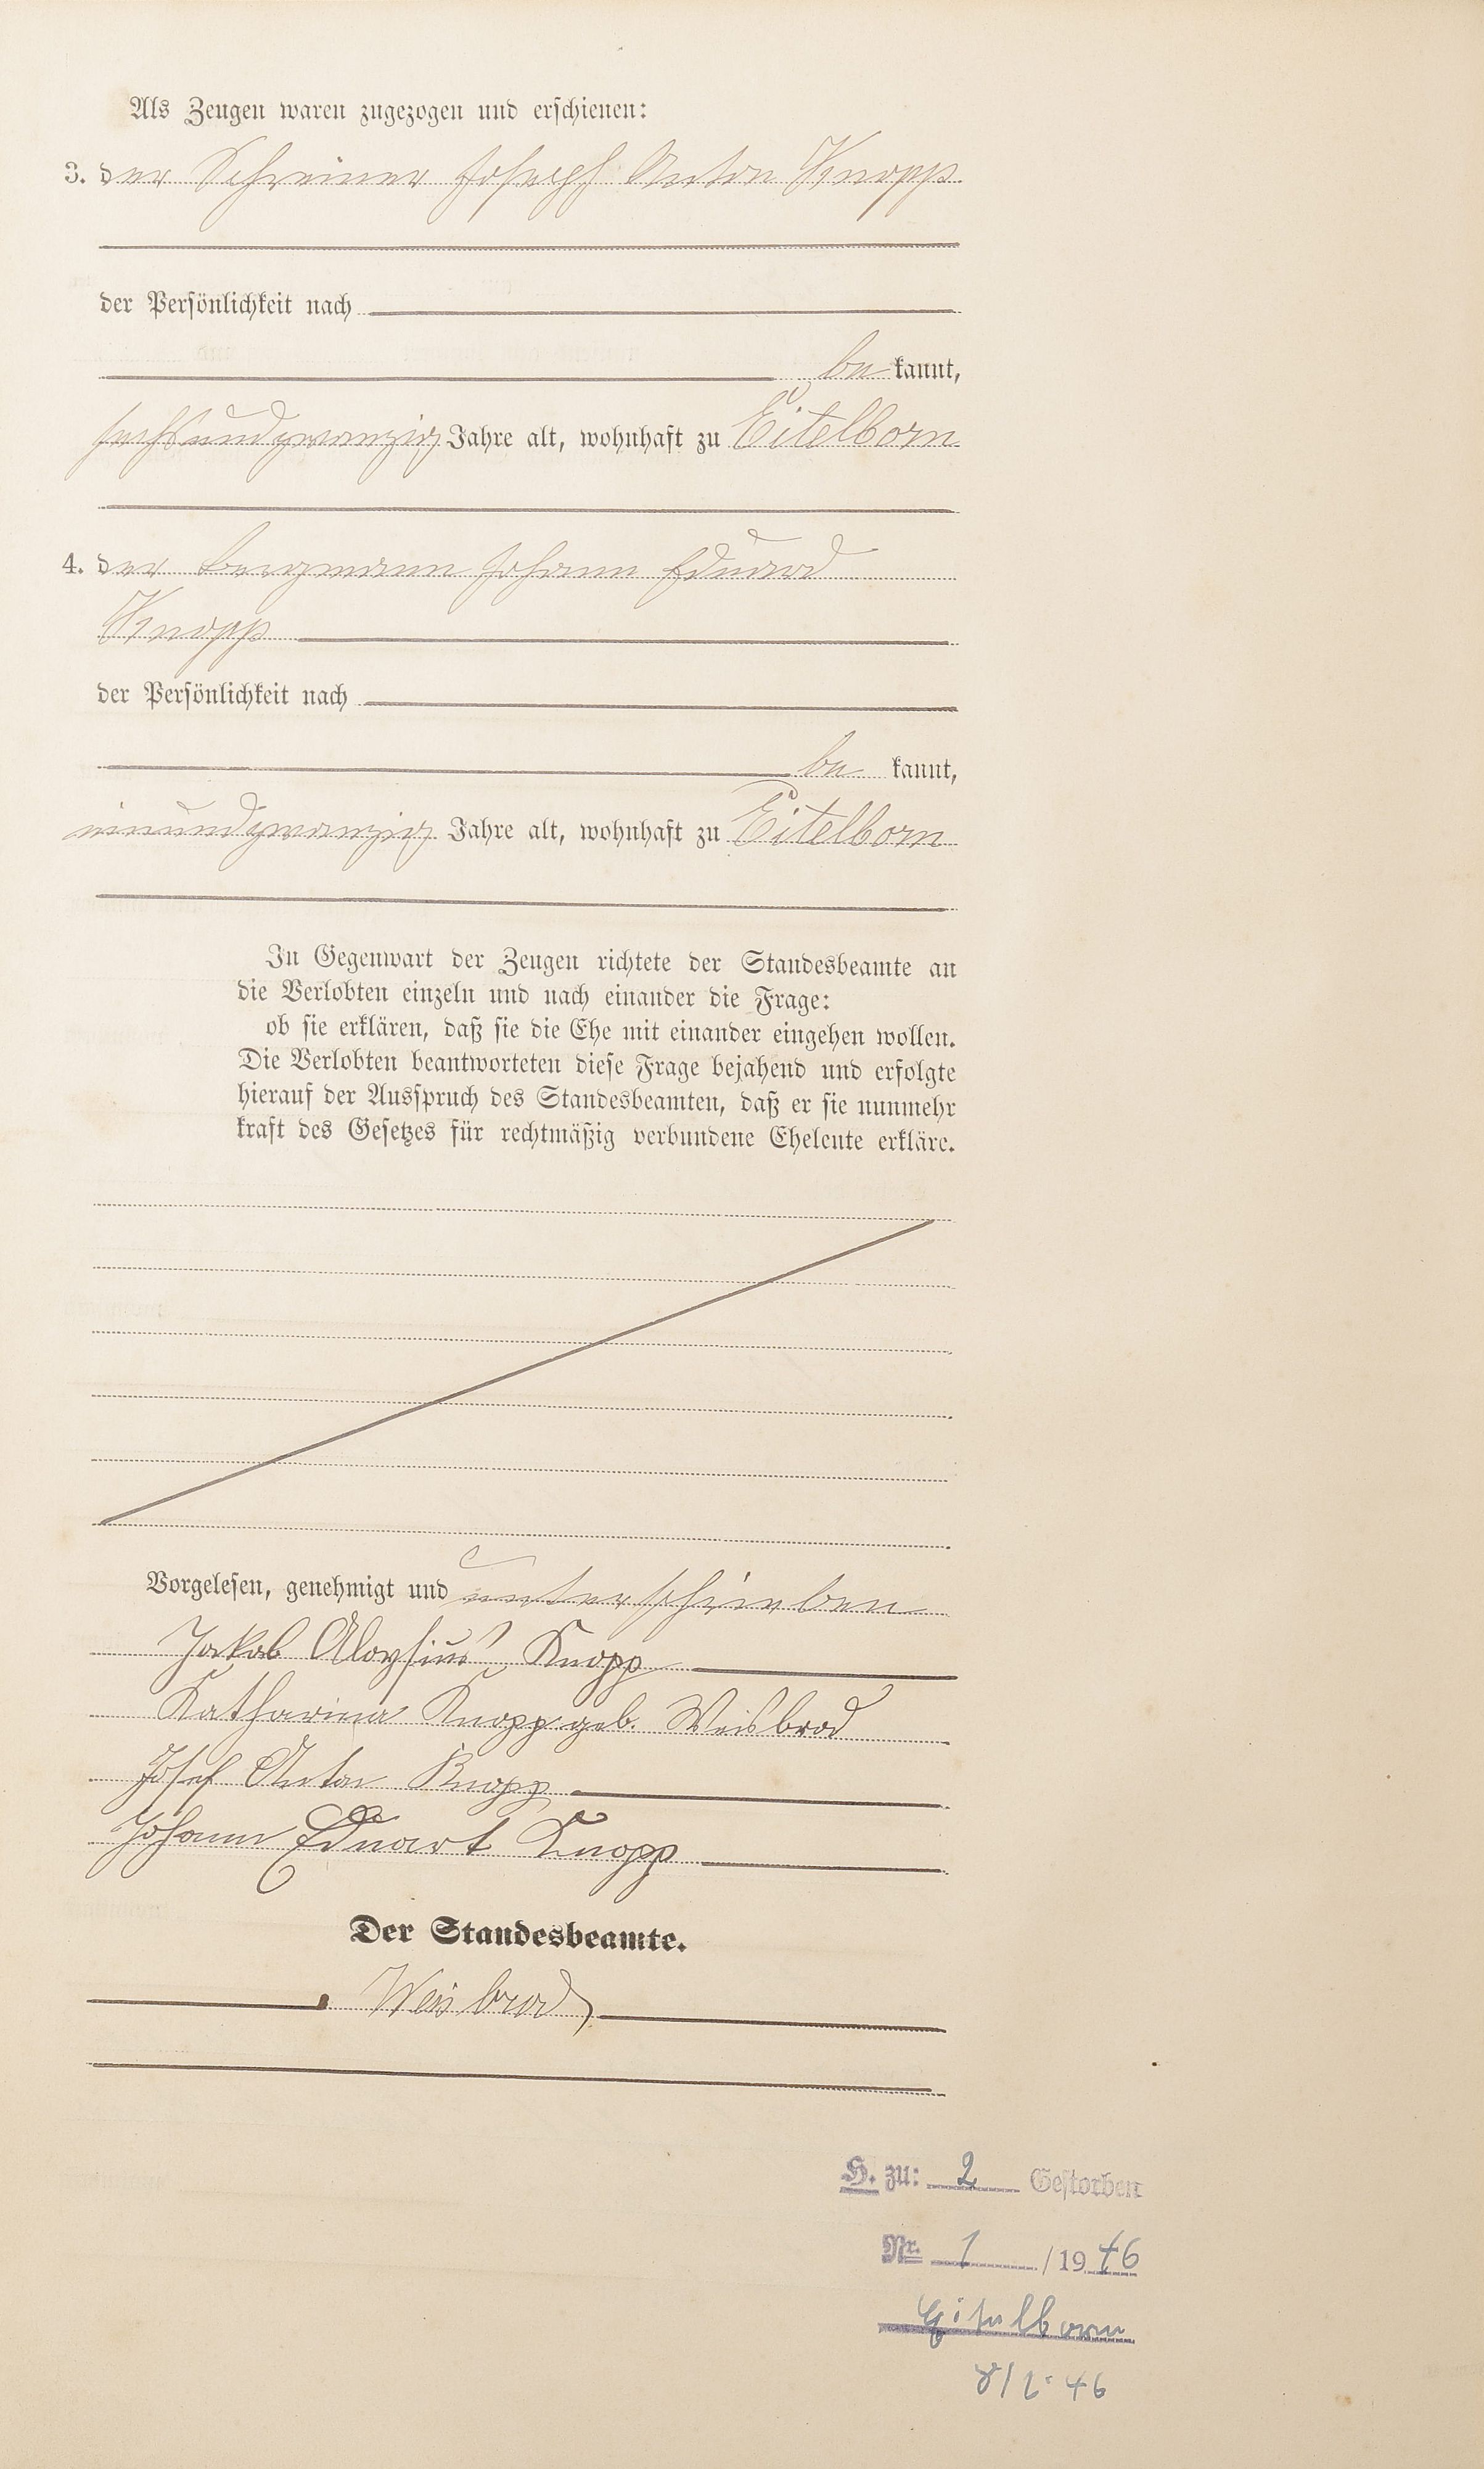 Als Zeugen waren zugezogen und erschienen:
3. der Schreiner Joseph Anton Knopp
der Persönlichkeit nach
be kannt,
sechsundzwanzig Jahre alt, wohnhaft zu Eitelborn
4. der Bergmann Johann Eduard
Knopp
der Persönlichkeit nach
be kannt,
einundzwanzig Jahre alt, wohnhaft zu Eitelborn
In Gegenwart der Zeugen richtete der Standesbeamte an
die Verlobten einzeln und nach einander die Frage:
ob sie erklären, daß sie die Ehe mit einander eingehen wollen.
Die Verlobten beantworteten diese Frage bejahend und erfolgte
hierauf der Ausspruch des Standesbeamten, daß er sie nunmehr
kraft des Gesetzes für rechtmäßig verbundene Eheleute erkläre.
Vorgelesen, genehmigt und unterschrieben
Jakob Aloysius Knopp
Katharina Knopp geb. Weisbrod
Josef Anton Knopp
Johann Eduart Knopp
Der Standesbeamte.
Weisbrod
H. zu: 2 Gestorben
Nr. 1 /1946
Eitelborn
46